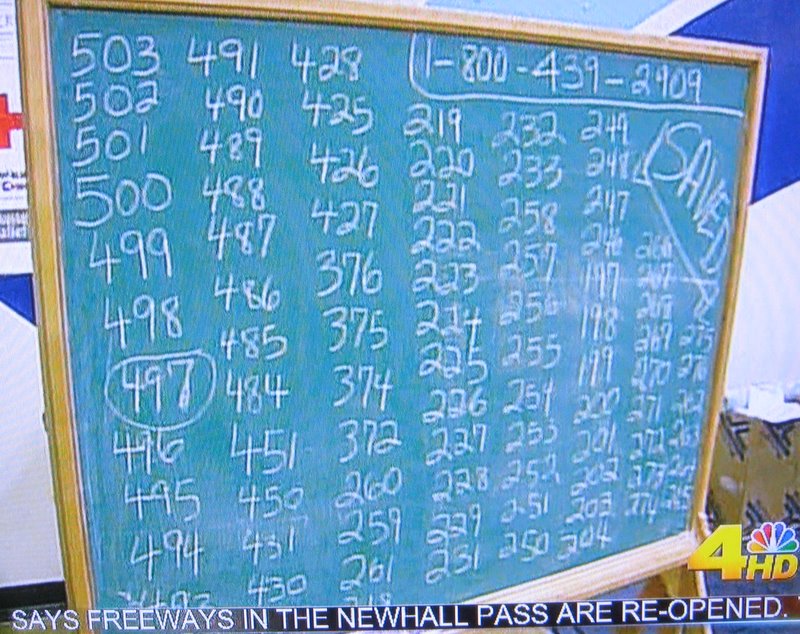 1-800-439-2909
SAVED
503 491 428
502 490 425 219 232 249
501 489 426 220 233 248
500 488 427 221 258 247
499 487 376 222 257 246 268
498 486 375 223 256 197 267
497 485 374 224 255 198
446 484 372 225 254 199 269
495 451 260 226 253 200 270
494 450 259 227 252 201 271
431 261 228 251 202 272
430 229 250 203 273
231 204 274
4HD
SAYS FREEWAYS IN THE NEWHALL PASS ARE RE-OPENED.